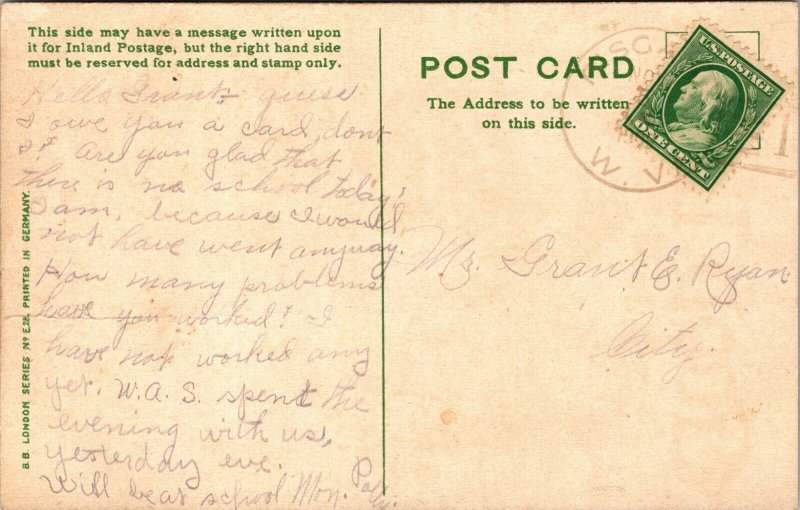 This side may have a message written upon
it for Inland Postage, but the right hand side
must be reserved for address and stamp only.
Hello Grant guess
I owe you a card, dont
I? Are you glad that
there is no school today?
I am, because I would
not have went anyway.
How many problems
have you worked? I
have not worked any
yet. W.A.S. spent the
evening with us,
yesterday eve.
Will be at school Mon.
B.B. LONDON SERIES No E.28. PRINTED IN GERMANY.
POST CARD
The Address to be written
on this side.
U.S. POSTAGE
ONE CENT
W. V
1
Mr. Grant E. Ryan
City.